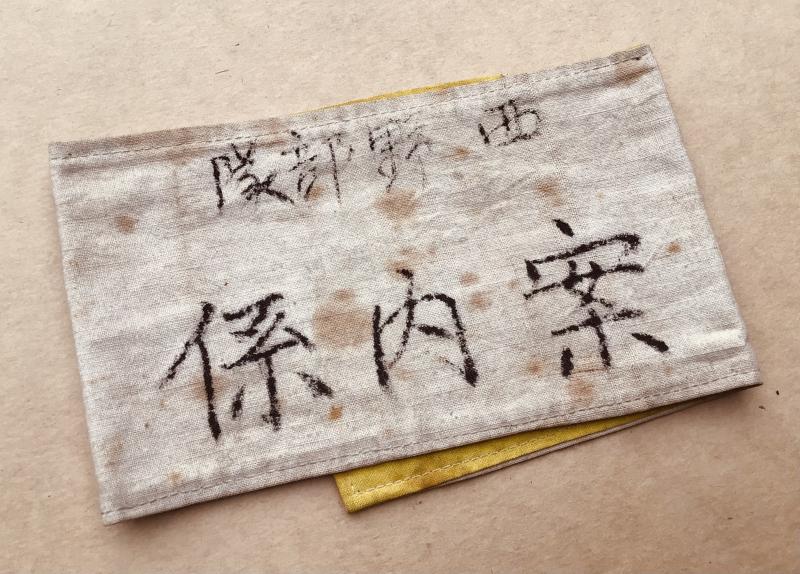 西野部隊
案内係